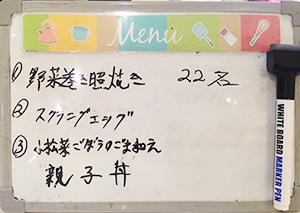 Menu
① 野菜巻き照焼き 22名
② スクランブルエッグ
③ 小松菜ごぼうのごま和え
親子丼
WHITE BOARD MARKER PEN